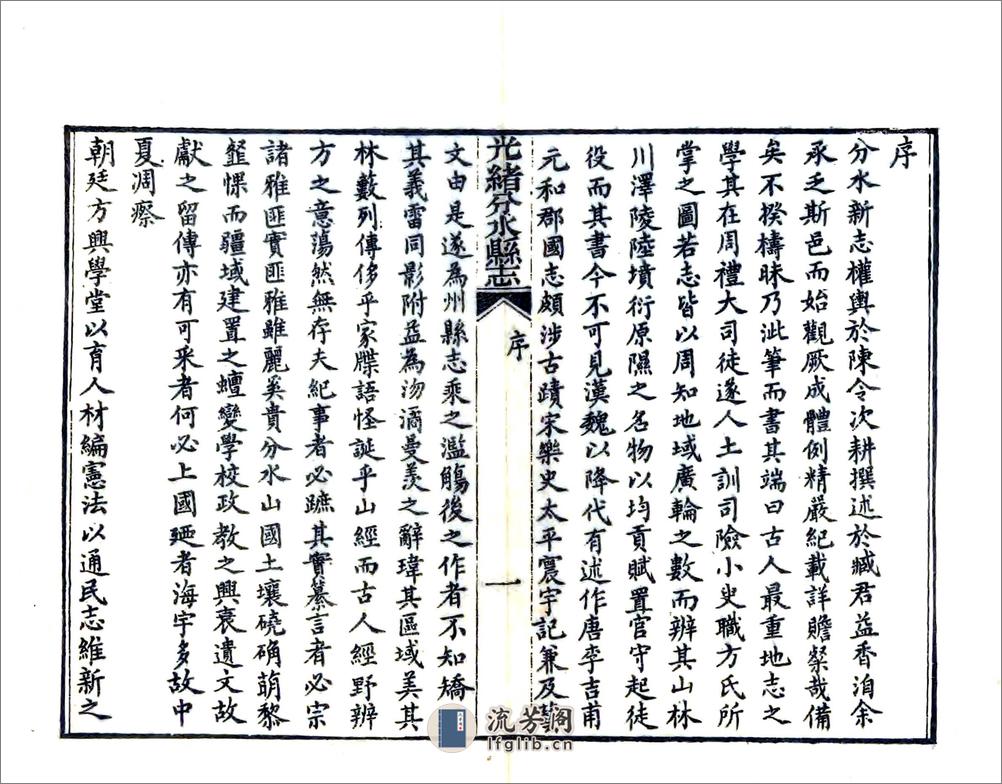 序
分水新志權輿於陳令次耕撰述於臧君益香洎余
承乏斯邑而始觀厥成體例精嚴紀載詳贍粲哉備
矣不揆檮昧乃泚筆而書其端曰古人最重地志之
學其在周禮大司徒遂人土訓司險小史職方氏所
掌之圖若志皆以周知地域廣輪之數而辨其山林
川澤陵陸墳衍原隰之名物以均貢賦置官守起徒
役而其書今不可見漢魏以降代有述作唐李吉甫
元和郡國志頗涉古蹟宋樂史太平寰宇記兼及
光緒分水縣志
序
一
文由是遂為州縣志乘之濫觴後之作者不知矯
其義雷同影附益為沕潏曼羨之辭瑋其區域美其
林藪列傳侈乎家牒語怪誕乎山經而古人經野辨
方之意蕩然無存夫紀事者必蹠其實纂言者必宗
諸雅匪實匪雅雖麗奚貴分水山國土壤磽确萌黎
蛵惈而疆域建置之蟺變學校政教之興衰遺文故
獻之留傳亦有可采者何必上國迺者海宇多故中
夏凋瘵
朝廷方興學堂以育人材編憲法以通民志維新之
流芳閣
lfglib.cn